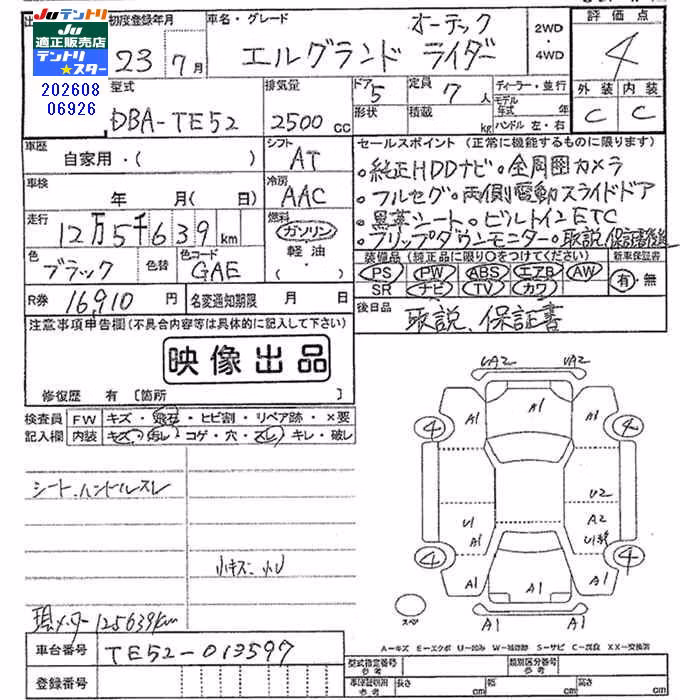 Juテントリ
Ju適正販売店
テントリ
★スター
202608
06926
初度登録年月
23年7月
車名・グレード
オーテック
エルグランド ライダー
2WD
・
4WD
評価点
4
外装 内装
C C
型式
DBA-TE52
排気量
2500 cc
ドア 5
形状
定員 7 人
積載 kg
ディーラー・並行
モデル年式 年
ハンドル 左・右
車歴
自家用・( )
シフト
AT
車検 年 月( 日)
冷房
AAC
走行 12万5千639km
燃料
ガソリン
軽油
・( )
色
ブラック
色替
色コード
GAE
R券 16,910円
名変通知期限 月 日
セールスポイント (正常に機能するものに限ります)
・純正HDDナビ・全周囲カメラ
・フルセグ・両側電動スライドドア
・黒革シート・ビルトインETC
・フリップダウンモニター・取説、保証書後送
装備品(純正品に限り○をつけてください)
PS PW ABS エアB AW
SR ナビ TV カワ
新車保証書
有・無
後日品
取説、保証書
注意事項申告欄(不具合内容等は具体的に記入して下さい)
映像出品
修復歴 有 [箇所 ]
検査員記入欄
FW キズ・飛石・ヒビ割・リペア跡・×要
内装 キズ・汚レ・コゲ・穴・スレ・キレ・破レ
シート、ハンドルスレ
小キズ、小U
現メーター125639km
車台番号 TE52-013597
登録番号
UA2 UA2
A1 A1 A1
4 4
U2
U1 A2
A1
4 4
A1 A1 A1
A1 A1
スペア
A-キズ E-エクボ U-凹み W-補修跡 S-サビ C-腐食 XX-交換済
型式指定番号 参考
類別区分番号 参考
車庫証明用 参考
長さ cm 幅 cm 高さ cm